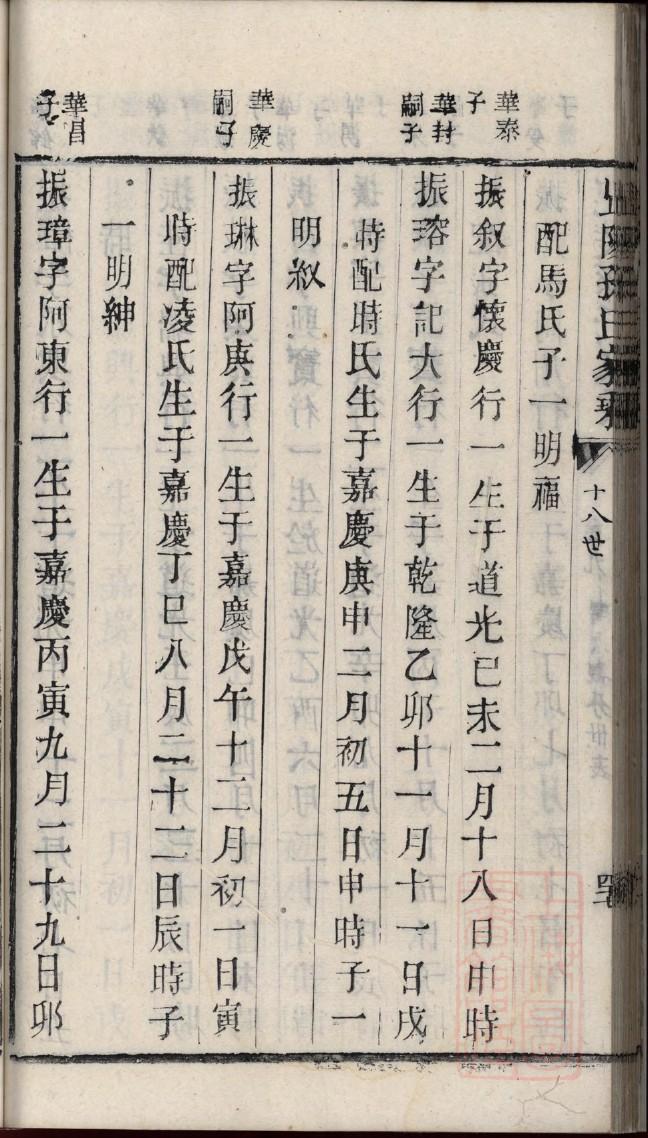 孫氏家乘
十八世
配馬氏子一明福
華泰
子
振叙字懷慶行一生于道光己未二月十八日申時
華封
嗣子
振瑢字記大行一生于乾隆乙卯十一月十一日戌
時配時氏生于嘉慶庚申二月初五日申時子一
明叙
華慶
嗣子
振琳字阿庚行一生于嘉慶戊午十二月初一日寅
時配凌氏生于嘉慶丁巳八月二十二日辰時子
一明紳
華昌
子
振璋字阿東行一生于嘉慶丙寅九月二十九日卯